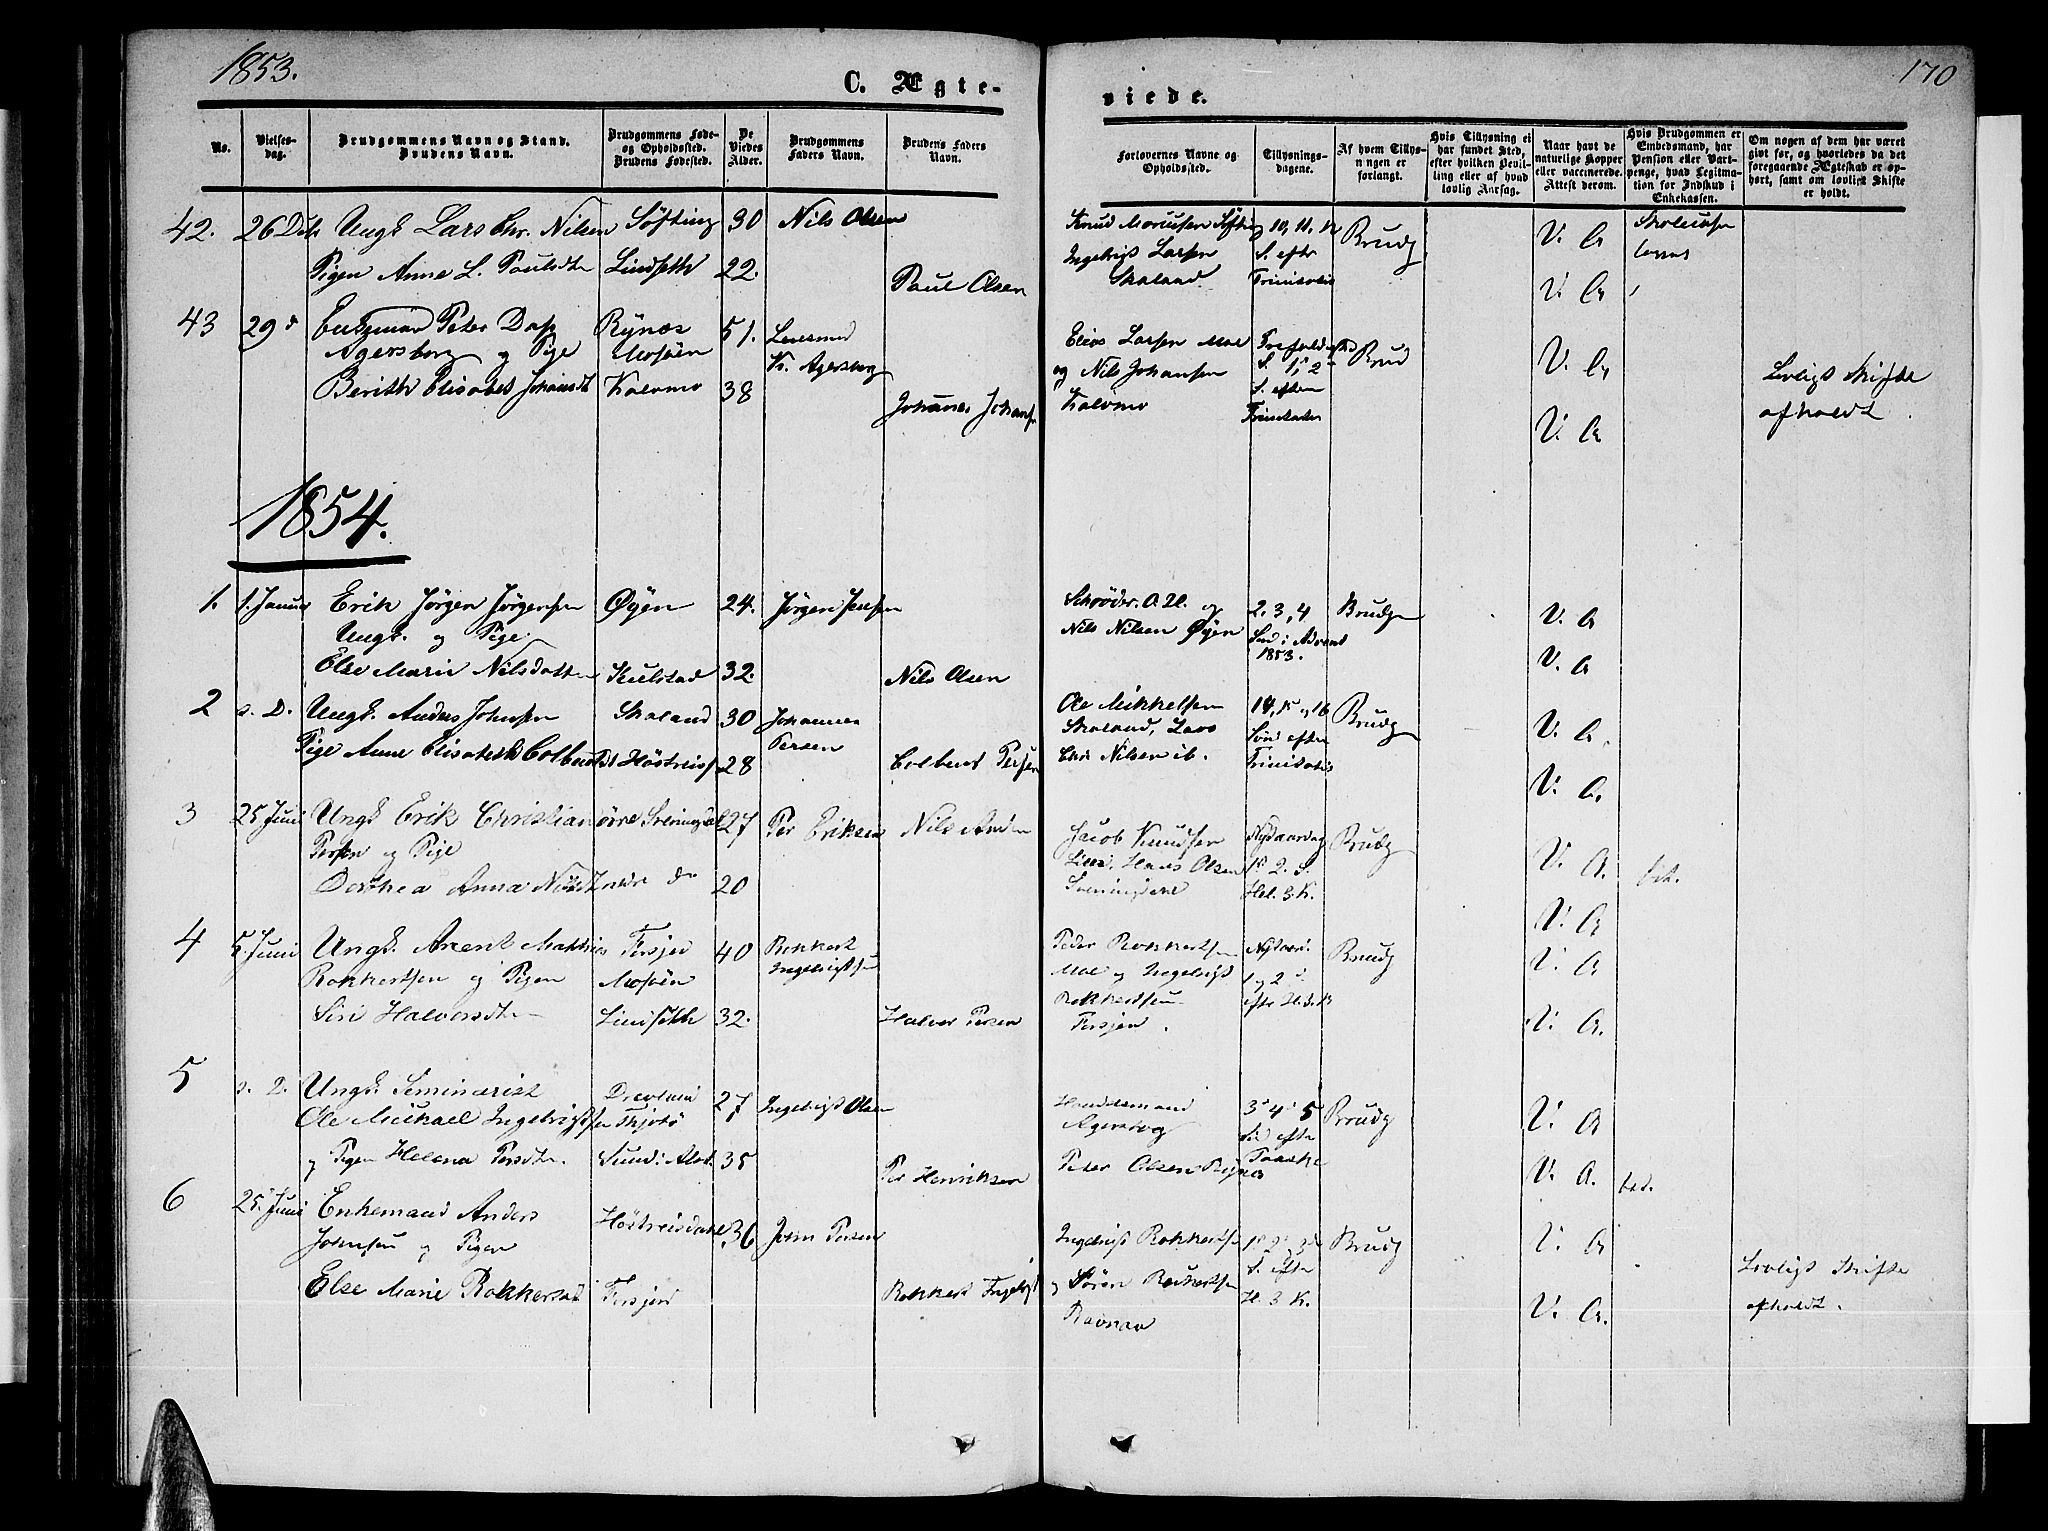 1853.
C. Ægte-
No.
Vielses-
dag.
Brudgommens Navn og Stand.
Brudens Navn.
Brudgommens Føde-
og Opholdssted.
Brudens Fødested.
De
Viedes
Alder.
Brudgommens
Faders Navn.
Brudens Faders
Navn.
42. 26 Dcb Ungk Lars Chr. Nilsen Søfting 30 Nils Olsen
Pigen Anne L. Paulsdtr Lindseth 22.
Paul Olsen
43 29 d Peter Dass Rynes 51.
Agersborg og Pige Mosøen K. Agersborg
Berith Elisabet Johansdt Kalvmo 38
Johanes Johans
1854.
1. 1. Januar Erik Jørgen Jørgensen Øyen 24. Jørgen Jensen
Ungk. og Pige
Else Marie Nilsdatter Kulstad 32.
Nils Olsen
2 s. D. Ungk. Anders Johnsen Skaland 30 Johannes
Persen
Pige Anne Elisabeth Colbensdt 28
Colbent Persen
3 25 Juni Ungk Erik Christian øvre Sveningdal 27 Per Eriksen Nils Anders
Persen og Pige
Dorthea Anna Nilsdt nedre do 20
4 5 Juni Ungk. Arent Mathias Forsjor 40 Rokkert
Ingebrigtsen
Rokkertsen og Pigen Mosøen
Siri Halvorsdtr Lindseth 32.
Halvor Persen
5 s. D. Ungk. Seminarist
Ole Mickael Ingebrigtsen Thjøtø 27 Ingebrigt Olsen
og Pigen Helena Persdtr. Sund i Alst. 35
Per Henriksen
6 25. Juni Enkemand Anders Høstreisdahl 36 John Persen
Johnsen og Pigen
Else Marie Rokkersdt Forsjord
Rokkert Ingebrigt
170
viede.
Forlovernes Navne og
Opholdssted.
Tillysnings-
dagene.
Af hvem Tillys-
ningen er
forlangt.
Hvis Tillysning ei
har fundet Sted,
efter hvilken Bevil-
ling eller af hvad
lovlig Aarsag.
Naar havt de
naturlige Kopper
eller vaccinerede.
Attest derom.
Hvis Brudgommen er
Embedsmand, har
Pension eller Vart-
penge, hvad Legitima-
tion for Indskud i
Enkekassen.
Om nogen af dem har været
givt før, og hvorledes da det
foregaaende Ægteskab er op-
hørt, samt om lovligt Skifte
er holdt.
Knud 10, 11, 12 Brudg V. A
Ingebrigt Larsen S. efter
Skaland Trinitatis V. A
Elias Larsen Moe Brud V. A
og Nils Johansen S. 1, 2 Lovligt Skifte
Kalvmo S. efter afholdt.
Trinitatis V. A
Schrøder. O. H. og 2. 3, 4 Brudg V. A
Nils Nilsen Øyen Sønd i Advent
1853. V. A
Ole Mikkelsen 14, 15 og 16 Brudg V. A.
Skaland, Lars Sønd efter
Chr Nilsen ib. Trinitatis V. A.
Jacob Knudsen Nytaarsdag Brudg V. A. bet.
Hans Olsen 1. 2. S.
Hel. 3 K. V. A
Peder Rokkertsen Nytaard. Brudg V. A
Moe og Ingebrigt 1 og 2 S.
Rokkertsen efter H. 3. K V. A.
Forsjor.
3 4 5 Brudg V. A
Agersborg Sø efter
Peter Olsen Rynes Paaske V. A. bet.
Ingebrigt Rokkertsen 1 2 og 3 Brudg V. A
og Søren Rokkertsen S. efter Lovligt Skifte
H. 3 K. V. A. afholdt.